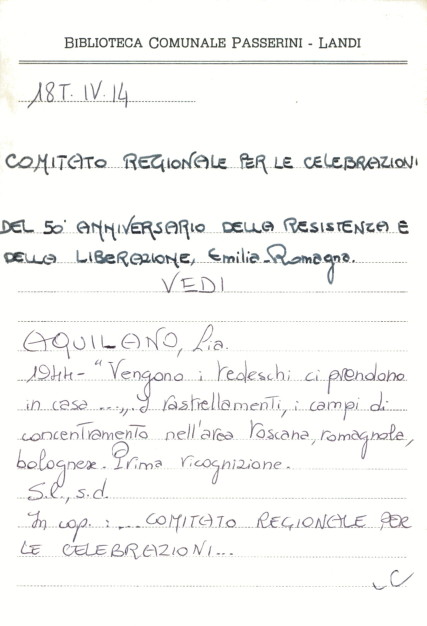 BIBLIOTECA COMUNALE PASSERINI - LANDI
18T. IV. 14
COMITATO REGIONALE PER LE CELEBRAZIONI
DEL 50° ANNIVERSARIO DELLA RESISTENZA E
DELLA LIBERAZIONE, Emilia-Romagna.
VEDI
AQUILANO, Lia.
1944- "Vengono i tedeschi ci prendono
in casa ...". I rastrellamenti, i campi di
concentramento nell'area toscana, romagnola,
bolognese. Prima ricognizione.
S.l., s.d.
In cop.: ... COMITATO REGIONALE PER
LE CELEBRAZIONI...